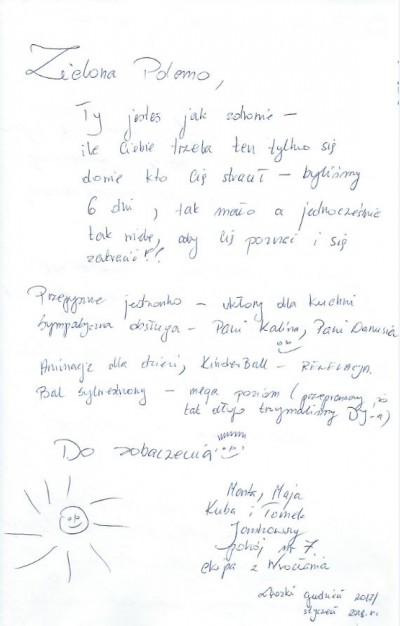 Zielona Polano,
Ty jesteś jak zdrowie –
ile Ciebie trzeba ten tylko się
dowie kto Cię stracił – byliśmy
6 dni, tak mało a jednocześnie
tak wiele, aby Cię poznać i się
zakochać!!
Przepyszne jedzonko – ukłony dla kuchni
Sympatyczna obsługa – Pani Kalina, Pani Danusia
Animacje dla dzieci, KinderBall – REWELACJA.
Bal sylwestrowy – mega poziom (przepraszamy, że
tak długo trzymaliśmy DJ-a)
Do zobaczenia
Marta, Maja
Kuba i Tomek
pokój nr 7.
ekipa z Wrocławia
grudzień 2017/
styczeń 2018 r.